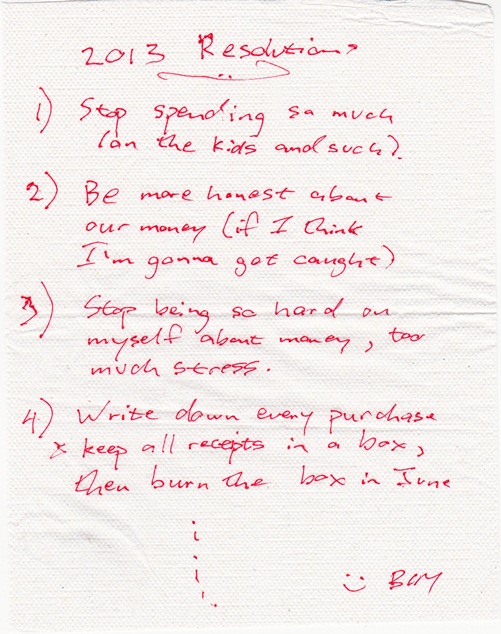 2013 Resolutions
1) Stop spending so much
(on the kids and such).
2) Be more honest about
our money (if I think
I'm gonna get caught)
3) Stop being so hard on
myself about money, too
much stress.
4) Write down every purchase
& keep all receipts in a box,
then burn the box in June
:) BCM